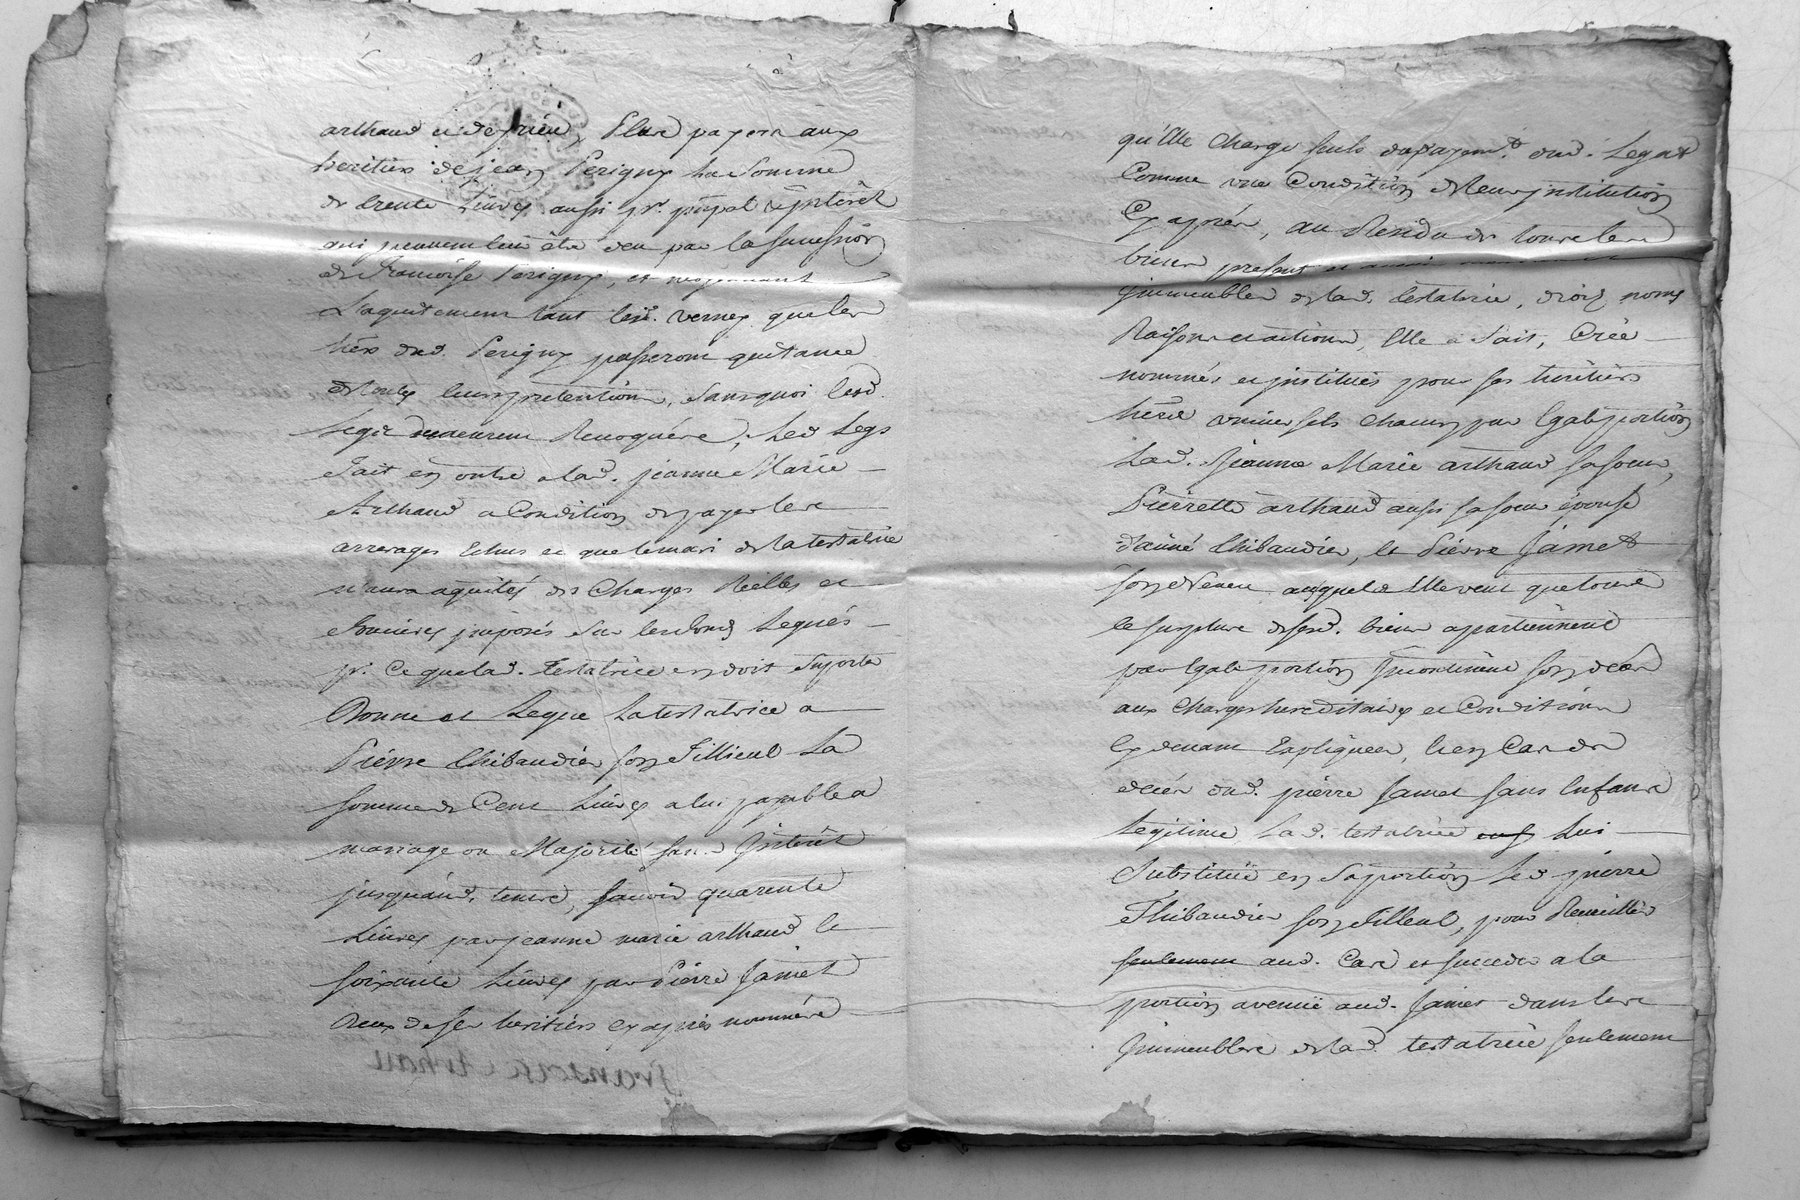 arthaud et de frien, Plus payera aux
heritiers de jean Perigny la Somme
de trente Livres aussi pr. prãpal & interêt
qui peuvent leur être deu par la succession
de francoise Perigny, et moyennant
L'aquitement tant lesd. Vernay que les
hérs dud. Perigny passeront quittance
de toutes leurs pretentions, sans quoi led.
Legs demeurera Revoquée, Led Legs
fait en outre a lad. jeanne Marie
Arthaud a Condition de payer les
arrerages Echus et que le mari de la testatrice
n'aura aquités des Charges Réelles et
foncieres jmposés Sur les fonds Legués
pr. Ce que lad. Testatrice en doit Suporter
Donne et Legue La testatrice a
Piérre thibaudier son fillieul La
Somme de Cent Livres a lui payable a
mariage ou Majorité sans Jnterêt
jusqu'aud. terme, Savoir quarente
Livres par jeanne marie arthaud et
soixante Livres par Piérre Jamet
Deux de ses heritiers cy après nommés
qu'Elle Charge seuls du payemt. dud. Legat
Comme une Condition de leur jnstitution
Cy après, au Residu de tous les
biens presents et
Jmmeubles de lad. testatrice, droits, noms
Raisons et actions, Elle a fait, Créé
nommés et jnstitués pour ses héritiers
universels Chacun par Egale portion
Lad. Jeanne Marie arthaud sa soeur,
Piérrette arthaud aussi sa soeur épouse
d'aimé thibaudier, et Piérre Jamet
son Neveu auxquels Elle veut que tout
le surplus de sesd. biens apartiénnent
par Egale portion Jncontinent son décès
aux Charges hereditaires et Conditions
Cy devant Expliquées, & en Cas de
décés dud. pierre Jamet sans Enfants
Legitime, Lad. testatrice Lui
Substitüe en Sa portion Led pierre
Thibaudier son filleul, pour Recueillir
seulement aud. Cas et succeder a la
portion avenüe aud. Jamet dans les
Jmmeubles de lad. testatrice seulement